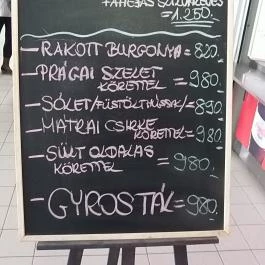 =1.250.-
-RAKOTT BURGONYA=820.
-PRÁGAI SZELET
KÖRETTEL =980.
-SÓLET/FÜSTÖLTHÚSSAL/=890
-MÁTRAI CSIRKE
KÖRETTEL=980
-SÜLT OLDALAS
KÖRETTEL =980.
-GYROSTÁL=980.